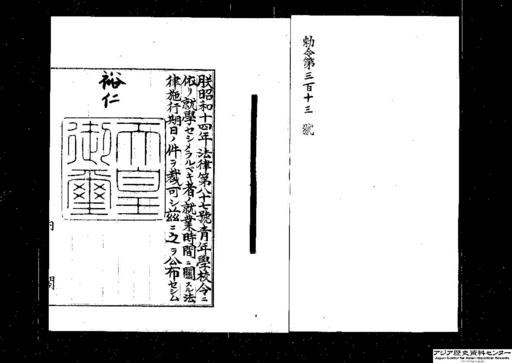 勅令第三百十三號
朕昭和十四年法律第八十七號青年學校令ニ
依リ就學セシメラルベキ者ノ就業時間ニ關スル法
律施行期日ノ件ヲ裁可シ茲ニ之ヲ公布セシム
裕仁
天皇
御璽
内閣
アジア歴史資料センター
Japan Center for Asian Historical Records